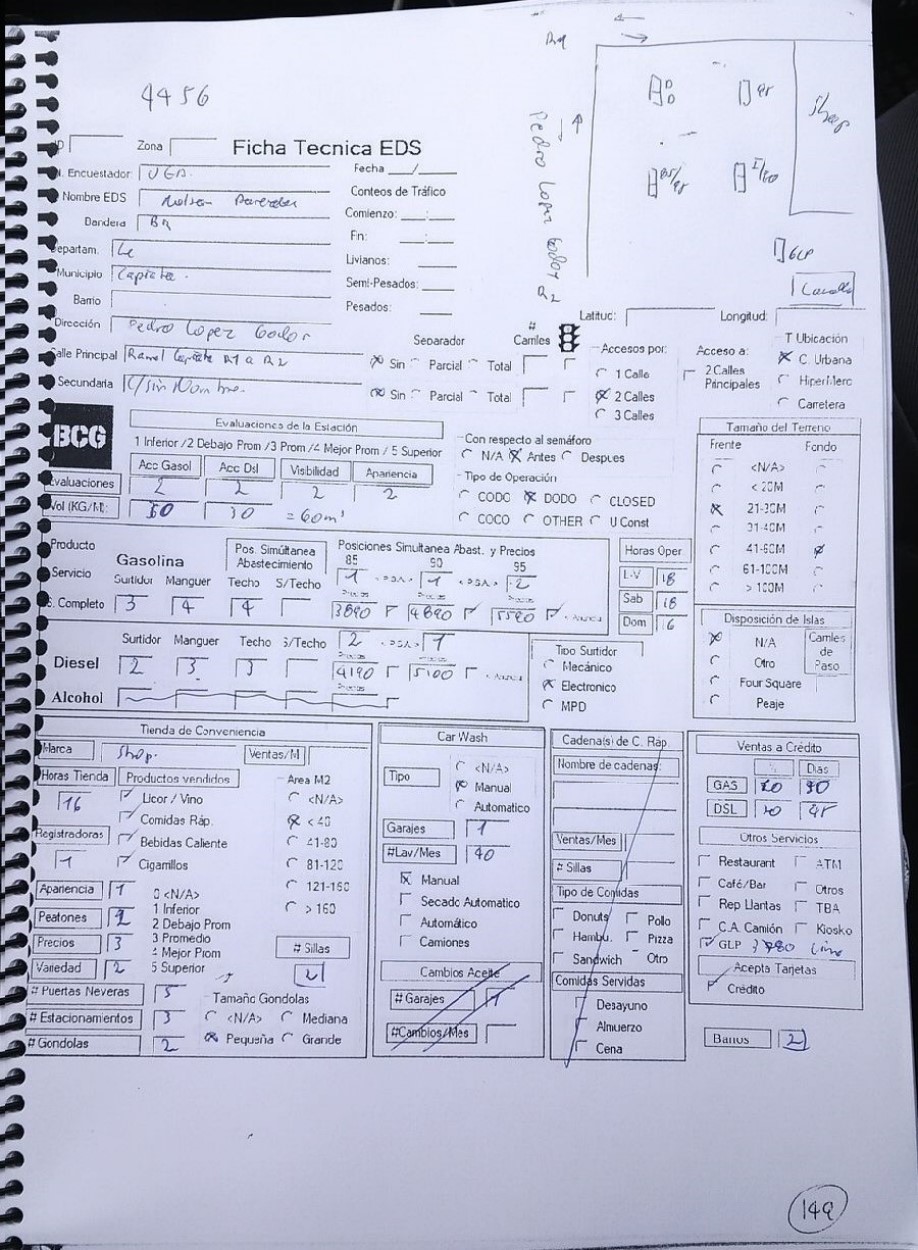 4456
Shop
Pedro Lopez Godoy
GLP
ID Zona Ficha Tecnica EDS
Encuestador UGA. Fecha __/__
Nombre EDS Nelson Paredes Conteos de Tráfico
Bandera BR Comienzo: __:__
Departam. Fin: __:__
Livianos:
Municipio Capiata. Semi-Pesados:
Barrio Pesados:
Latitud: Longitud:
Dirección Pedro Lopez Godoy Separador # Carriles Accesos por: Acceso a: T Ubicación
Calle Principal Ramal Capiata R1 a R2 Sin Parcial Total 1 Calle 2 Calles Principales C. Urbana
Secundaria C/sin Nombre. Sin Parcial Total 2 Calles HiperMerc
3 Calles Carretera
BCG
Evaluaciones de la Estación
1 Inferior /2 Debajo Prom /3 Prom /4 Mejor Prom / 5 Superior
Acc Gasol Acc Dsl Visibilidad Apariencia
Evaluaciones 2 2 2 2
Vol (KG/M): 30
Con respecto al semáforo
N/A Antes Despues
Tipo de Operación
CODO DODO CLOSED
COCO OTHER U Const
Tamaño del Terreno
Frente Fondo
<N/A>
< 20M
21-30M
31-40M
41-60M
61-100M
> 100M
Producto
Servicio
S. Completo
Gasolina
Pos. Simúltanea Abastecimiento
Posiciones Simultanea Abast. y Precios
85 90 95
1 1 2
Surtidor Manguer Techo S/Techo
3 4 4
3890 4890 5590
Horas Oper
L-V 18
Sab 18
Dom 16
Diesel
Surtidor Manguer Techo S/Techo 2 1
2 3 3 4190 5100
Alcohol
Tipo Surtidor
Mecánico
Electronico
MPD
Disposición de Islas
N/A
Otro
Four Square
Peaje
Carriles de Paso
Tienda de Conveniencia
Marca Shop. Ventas/M
Horas Tienda 16
Productos vendidos
Licor / Vino
Comidas Ráp.
Bebidas Caliente
Cigarrillos
Registradoras 1
Area M2
<N/A>
< 40
41-80
81-120
121-160
> 160
Apariencia 1
Peatones
Precios 3
Variedad 2
0 <N/A>
1 Inferior
2 Debajo Prom
3 Promedio
4 Mejor Prom
5 Superior
# Sillas
2
# Puertas Neveras 5
# Estacionamientos 3
# Gondolas 2
Tamaño Gondolas
<N/A> Mediana
Pequeña Grande
Car Wash
Tipo
<N/A>
Manual
Automatico
Garajes 1
#Lav/Mes 40
Manual
Secado Automatico
Automático
Camiones
Cambios Aceite
# Garajes
#Cambios/Mes
Cadena(s) de C. Ráp.
Nombre de cadenas:
Ventas/Mes
# Sillas
Tipo de Comidas
Donuts Pollo
Hambu. Pizza
Sandwich Otro
Comidas Servidas
Desayuno
Almuerzo
Cena
Ventas a Crédito
% Dias
GAS
DSL
Otros Servicios
Restaurant ATM
Café/Bar Otros
Rep Llantas TBA
C.A. Camión Kiosko
GLP
Acepta Tarjetas
Crédito
Baños 2
149